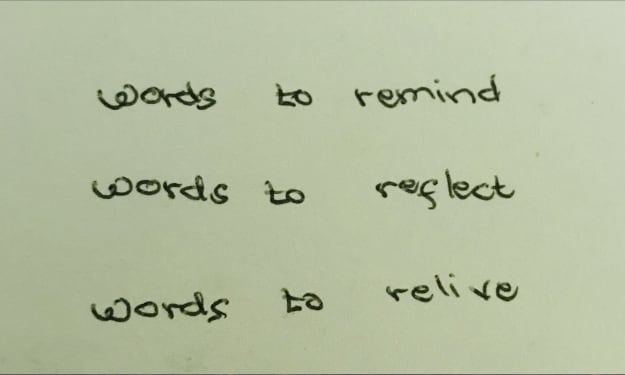 words to remind
words to reflect
words to relive